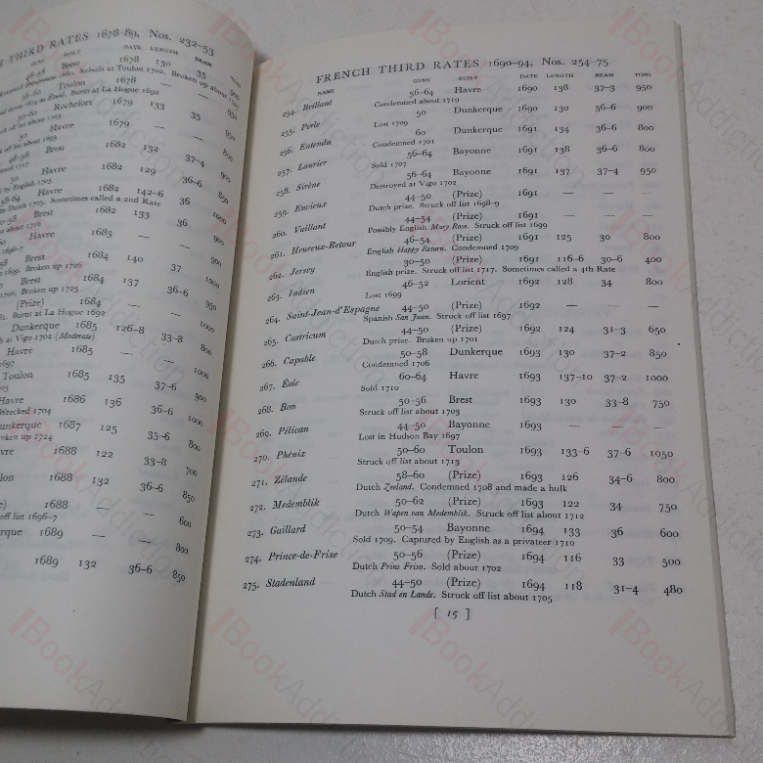 H THIRD RATES 1678-89, Nos. 232-53
GUNS BUILT DATE LENGTH BEAM TONS
Brest 1678 130 35
Rebuilt at Toulon 1702. Broken up about
Toulon 1678 —
Burnt at La Hogue 1692
Rochefort 1679 133 35
off list about 1703
Havre 1679 — —
Brest 1682 132 37-4
Havre 1682 129 36-6
by English 1703
Havre 1682 142-6 36 1000
by Dutch 1703. Sometimes called a 2nd Rate
Brest 1682 133 36
about 1716
Havre 1683 — —
1696-7
Brest 1684 140 37 1000
1699. Broken up 1726
Brest 1684 137 36-6 950
1700. Broken up 1723
(Prize) 1684 — — 1000
Burnt at La Hogue 1692
Dunkerque 1685 126-8 33-8 800
h at Vigo 1702 (Moderate)
Havre 1685 — — 1000
1697
Toulon 1685 135 37-6 900
Havre 1686 136 36-6 1000
Wrecked 1704
unkerque 1687 125 35-6 800
roken up 1724
vre 1688 122 33-8 700
lon 1688 132 36-6 850
) 1688 — — 600
off list 1696-7
rque 1689 — — 800
1689 132 36-6 850
FRENCH THIRD RATES 1690-94, Nos. 254-75
NAME GUNS BUILT DATE LENGTH BEAM TONS
254. Brillant 56-64 Havre 1690 138 37-3 950
Condemned about 1719
255. Perle 50 Dunkerque 1690 130 36-6 900
Lost 1709
256. Entendu 60 Dunkerque 1691 134 36-6 800
Condemned 1701
257. Laurier 56-64 Bayonne 1691 138 36-6 800
Sold 1707
258. Sirène 56-64 Bayonne 1691 137 37-4 950
Destroyed at Vigo 1702
259. Envieux 44-50 (Prize) 1691 — — —
Dutch prize. Struck off list 1698-9
260. Vaillant 44-54 (Prize) 1691 — — —
Possibly English Mary Rose. Struck off list 1699
261. Heureux-Retour 46-54 (Prize) 1691 125 30 800
English Happy Return. Condemned 1709
262. Jersey 30-50 (Prize) 1691 116-6 30-6 400
English prize. Struck off list 1717. Sometimes called a 4th Rate
263. Indien 46-52 Lorient 1692 128 34 800
Lost 1699
264. Saint-Jean-d'Espagne 44-50 (Prize) 1692 — — —
Spanish San Juan. Struck off list 1697
265. Castricum 44-50 (Prize) 1692 124 31-3 650
Dutch prize. Broken up 1701
266. Capable 50-58 Dunkerque 1693 130 37-2 850
Condemned 1706
267. Éole 60-64 Havre 1693 137-10 37-2 1000
Sold 1710
268. Bon 50-56 Brest 1693 130 33-8 750
Struck off list about 1703
269. Pélican 44-50 Bayonne 1693 — — —
Lost in Hudson Bay 1697
270. Phénix 50-60 Toulon 1693 133-6 37-6 1050
Struck off list about 1713
271. Zélande 58-60 (Prize) 1693 126 34-6 800
Dutch Zeeland. Condemned 1708 and made a hulk
272. Medemblik 50-62 (Prize) 1693 122 34 750
Dutch Wapen van Medemblik. Struck off list about 1712
273. Gaillard 50-54 Bayonne 1694 133 36 600
Sold 1709. Captured by English as a privateer 1710
274. Prince-de-Frise 50-56 (Prize) 1694 116 33 500
Dutch Prins Friso. Sold about 1702
275. Stadenland 44-50 (Prize) 1694 118 31-4 480
Dutch Stad en Lande. Struck off list about 1705
[ 15 ]
BookAddiction